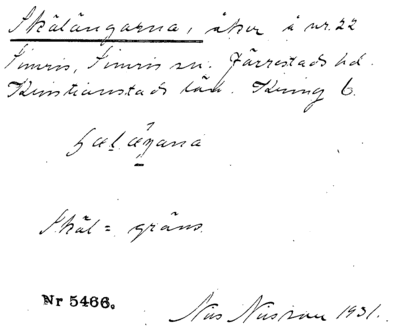 Skälängarna, åker å nr. 22
Simris, Simris sn. Järrestads hd.
Kristianstads län. Kring 6.
Skäl = gräns.
Nr 5466.
Nils Nilsson 1931.